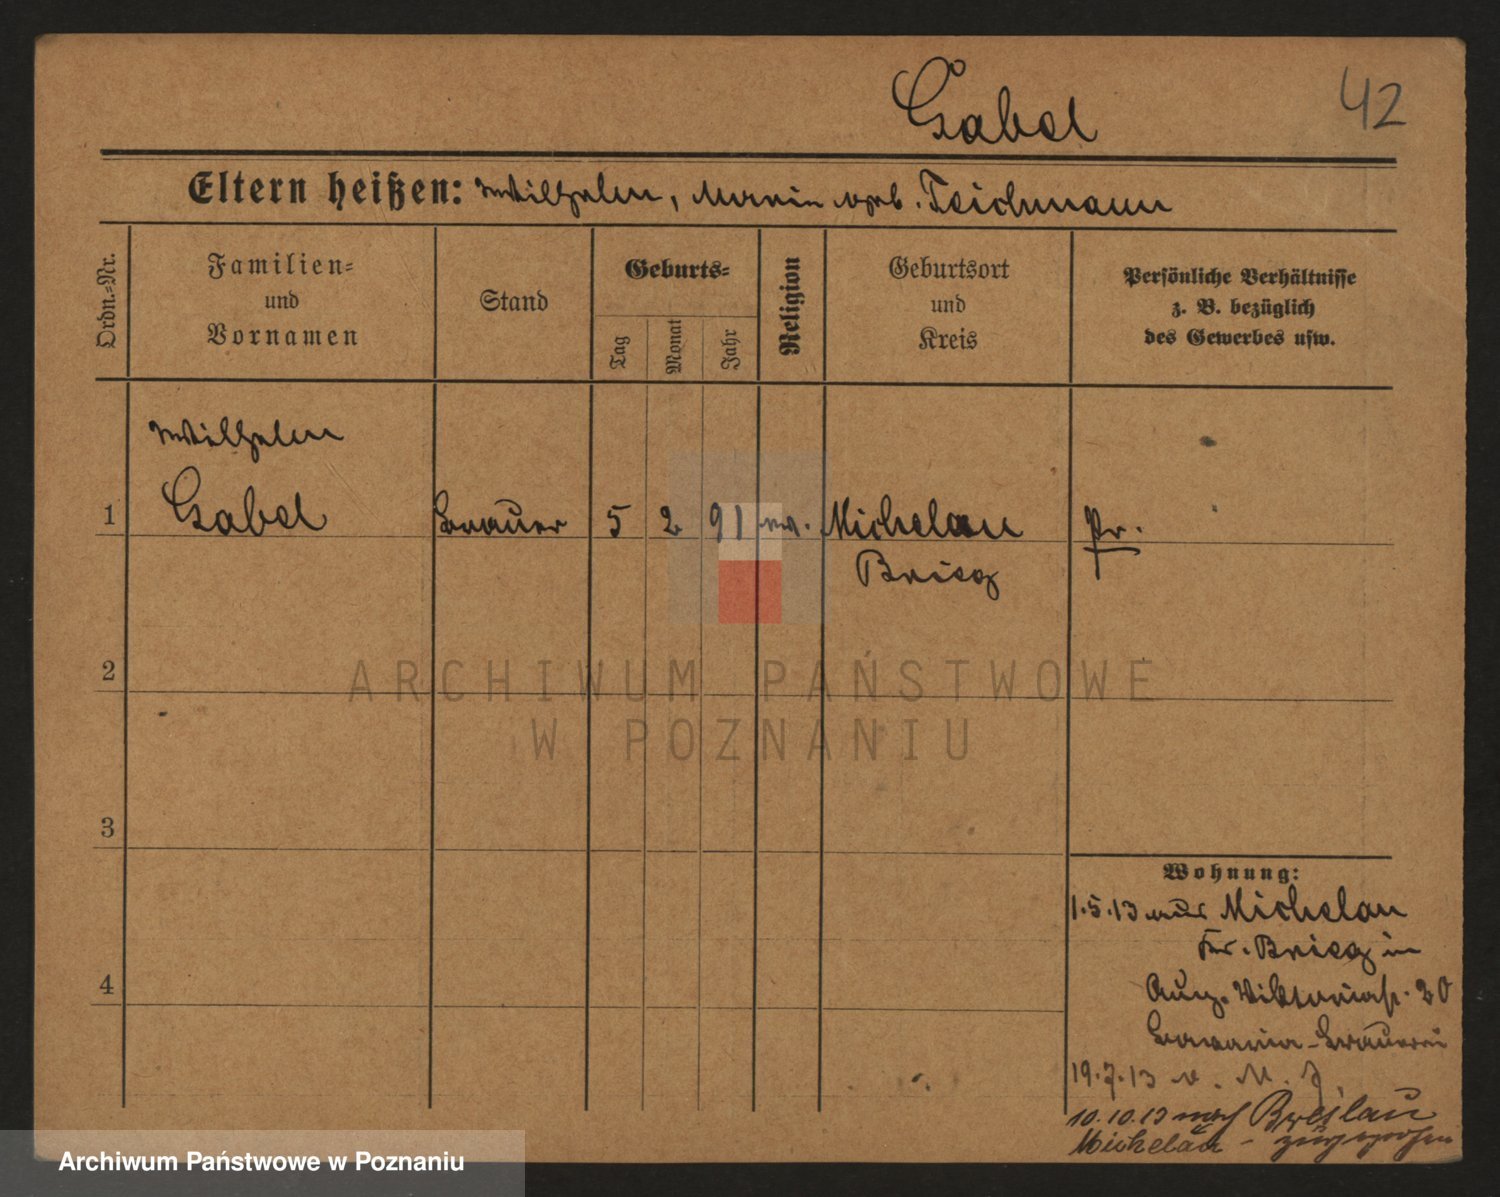 Gabel
42
Eltern heißen: Wilhelm, Maria geb. Teichmann
Ordn.-Nr.
Familien-
und
Vornamen
Stand
Geburts-
Tag
Monat
Jahr
Religion
Geburtsort
und
Kreis
Persönliche Verhältnisse
z. B. bezüglich
des Gewerbes usw.
Wilhelm
1 Gabel Brauer 5 2 91 ev. Michelau Pr.
Brieg
2
3
4
Wohnung:
1.5.13 aus Michelau
Kr. Brieg in
Aug. Viktoriastr. 20
Bavaria-Brauerei
19.7.13 v. M.
10.10.13 nach Breslau
Michelau -
ARCHIWUM PAŃSTWOWE
W POZNANIU
Archiwum Państwowe w Poznaniu